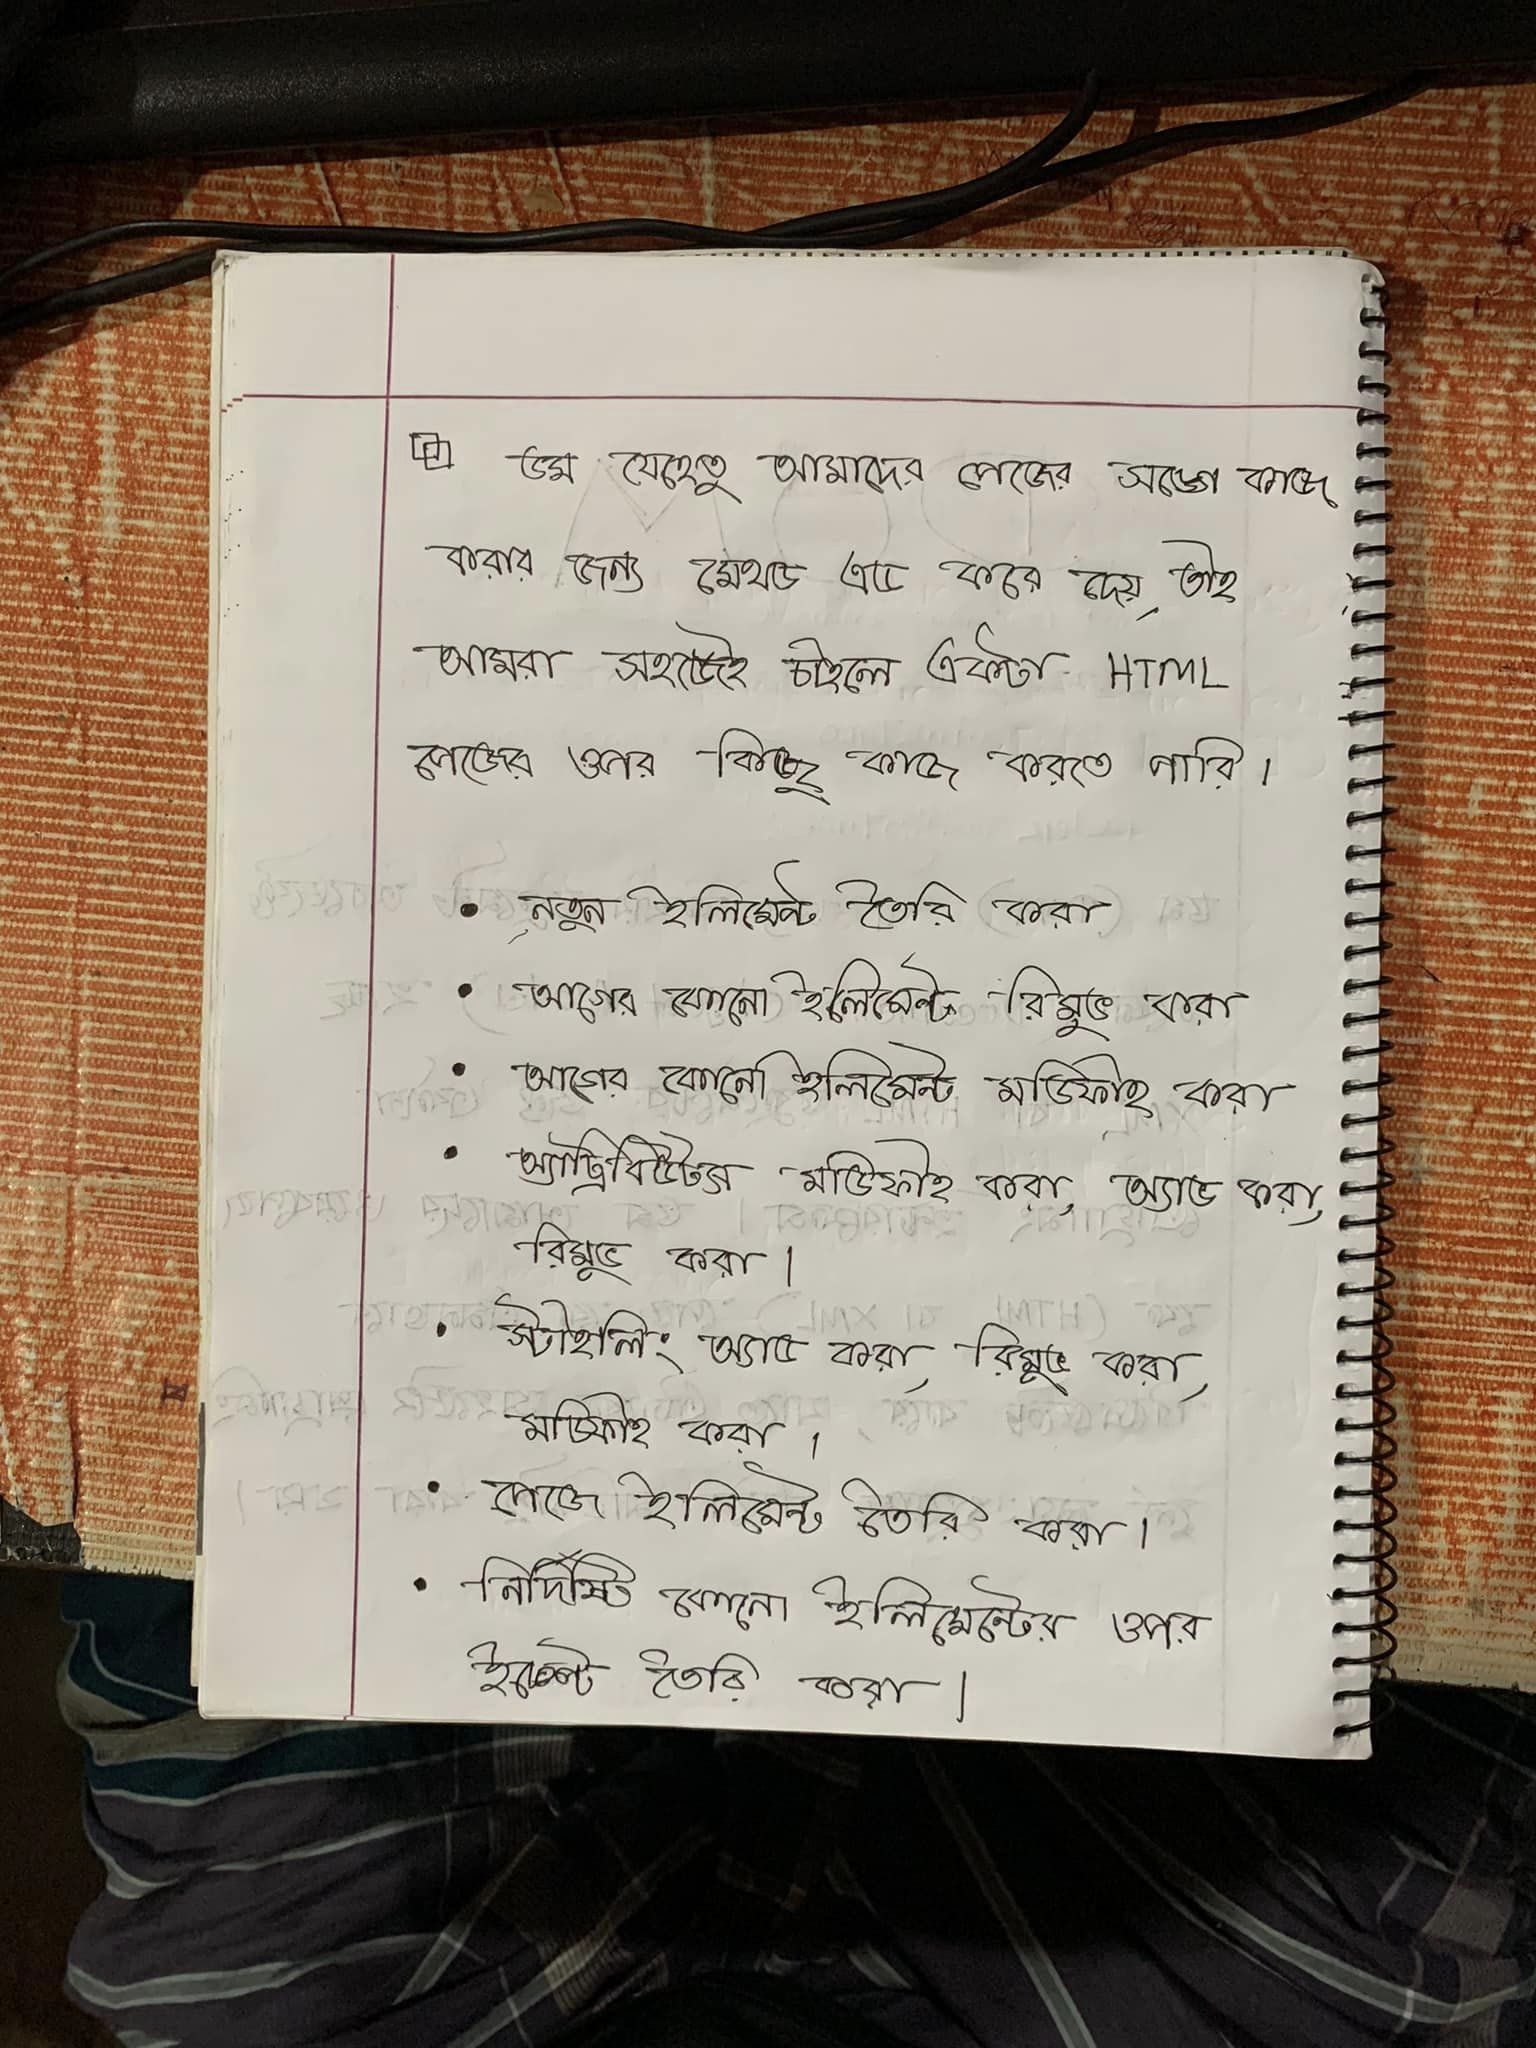 ডম যেহেতু আমাদের পেজের সঙ্গে কাজ
করার জন্য মেথড এড করে দেয়, তাই
আমরা সহজেই চাইলে একটা HTML
পেজের ওপর কিছু কাজ করতে পারি।
• নতুন ইলিমেন্ট তৈরি করা
• আগের কোনো ইলিমেন্ট রিমুভ করা
• আগের কোনো ইলিমেন্ট মডিফাই করা
• অ্যাট্রিবিউটস মডিফাই করা, অ্যাড করা,
রিমুভ করা।
• স্টাইলিং অ্যাড করা, রিমুভ করা,
মডিফাই করা।
• পেজে ইলিমেন্ট তৈরি করা।
• নির্দিষ্ট কোনো ইলিমেন্টের ওপর
ইভেন্ট তৈরি করা।